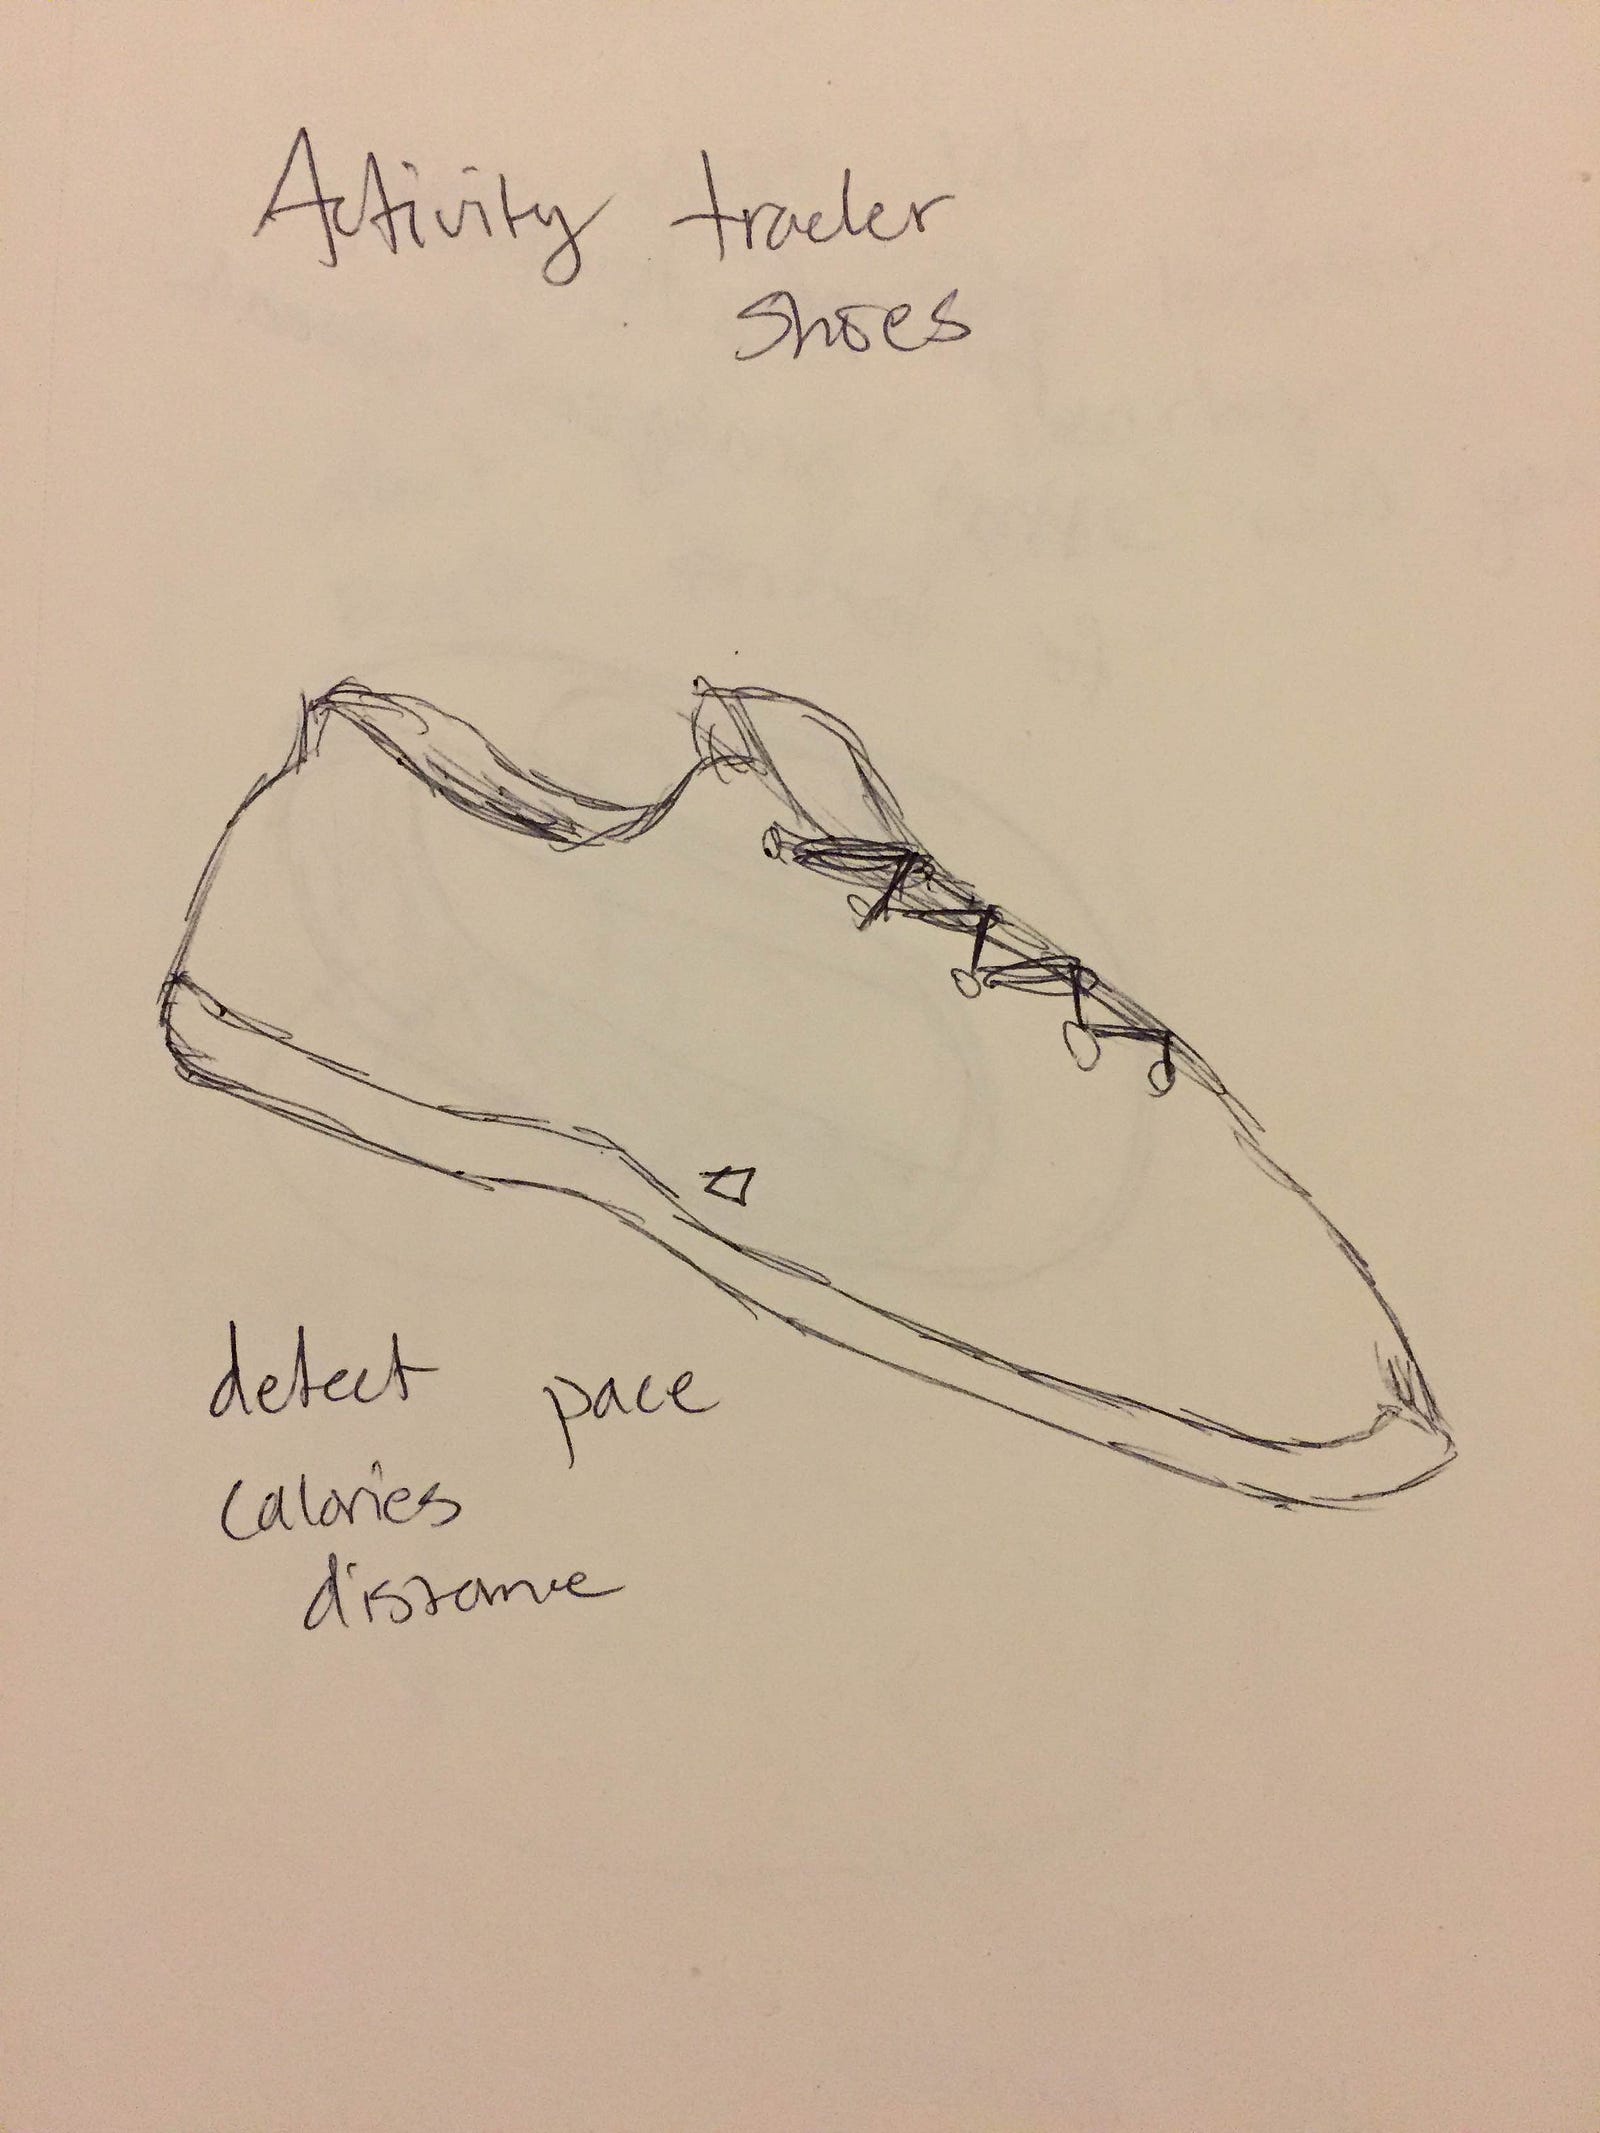 Activity tracker
shoes
detect pace
calories
distance